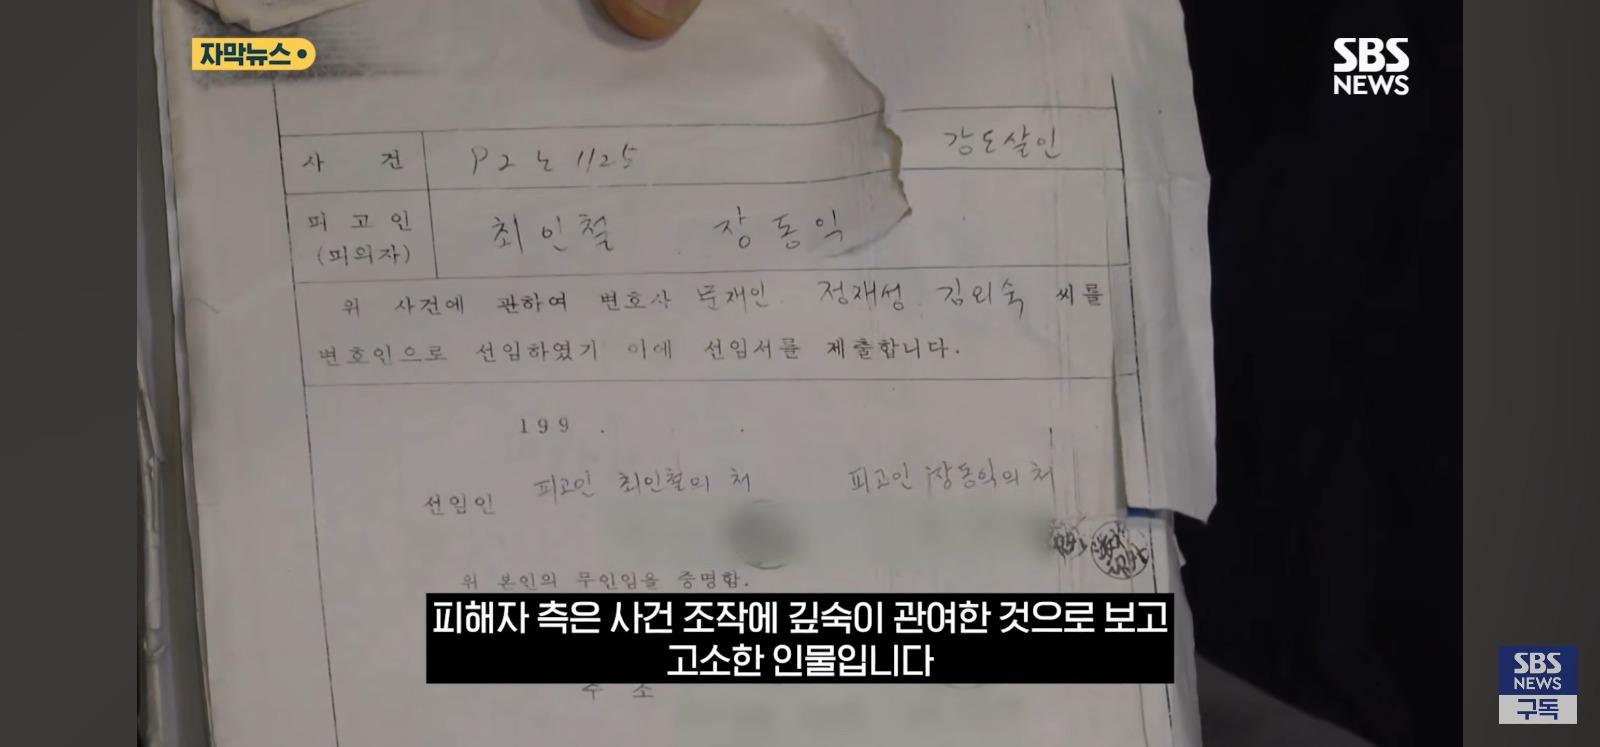 자막뉴스
SBS
NEWS
사 건 P2노1125 강도살인
피고인 최인철 장동익
(피의자)
위 사건에 관하여 변호사 문재인. 정재성. 김외숙 씨를
변호인으로 선임하였기 이에 선임서를 제출합니다.
199 . .
피고인 최인철의 처 피고인 장동익의 처
선임인
위 본인의 무인임을 증명함.
피해자 측은 사건 조작에 깊숙이 관여한 것으로 보고
고소한 인물입니다
주 소
SBS
NEWS
구독